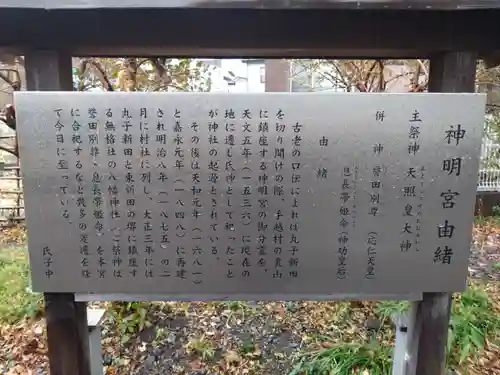 神明宮由緒
主祭神　天照皇大神
併神　誉田別尊（応仁天皇）
息長帯姫命（神功皇后）
由緒
古老の口伝によれば丸子新田
を切り開けの際、手越村の貴山
に鎮座する神明宮の御分霊を、
天文五年（一五三六）に現在の
地に遷し氏神として祀ったこと
が神社の起源とされている。
その後は天和元年（一六八一）
と嘉永元年（一八四八）に再建
され明治八年（一八七五）の二
月に村社に列し、大正三年には
丸子新田と東新田の堺に鎮座す
る無格社の八幡神社（ご祭神は
誉田別尊、息長帯姫命）を本宮
に合祀するなど幾多の変遷を経
て今日に至っている。
氏子中